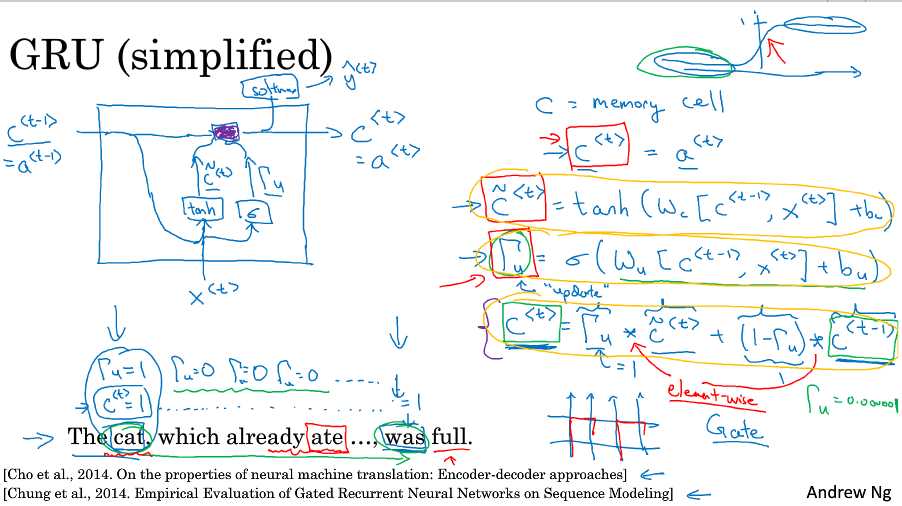 GRU (simplified)
softmax → ŷ<t>
c<t-1>
= a<t-1>
c<t>
= a<t>
c̃<t>
Γu
tanh
σ
x<t>
1
C = memory cell
→ c<t> = a<t>
→ c̃<t> = tanh (Wc [c<t-1>, x<t>] + bc)
→ Γu = σ (Wu [c<t-1>, x<t>] + bu)
"update"
c<t> = Γu * c̃<t> + (1-Γu) * c<t-1>
= 1
1
element-wise
Γu = 0.000001
Gate
Γu = 1 Γu = 0 Γu = 0 Γu = 0 ......
c<t> = 1 ............ = 1
→ The cat, which already ate …, was full.
[Cho et al., 2014. On the properties of neural machine translation: Encoder-decoder approaches] ←
[Chung et al., 2014. Empirical Evaluation of Gated Recurrent Neural Networks on Sequence Modeling] ←
Andrew Ng